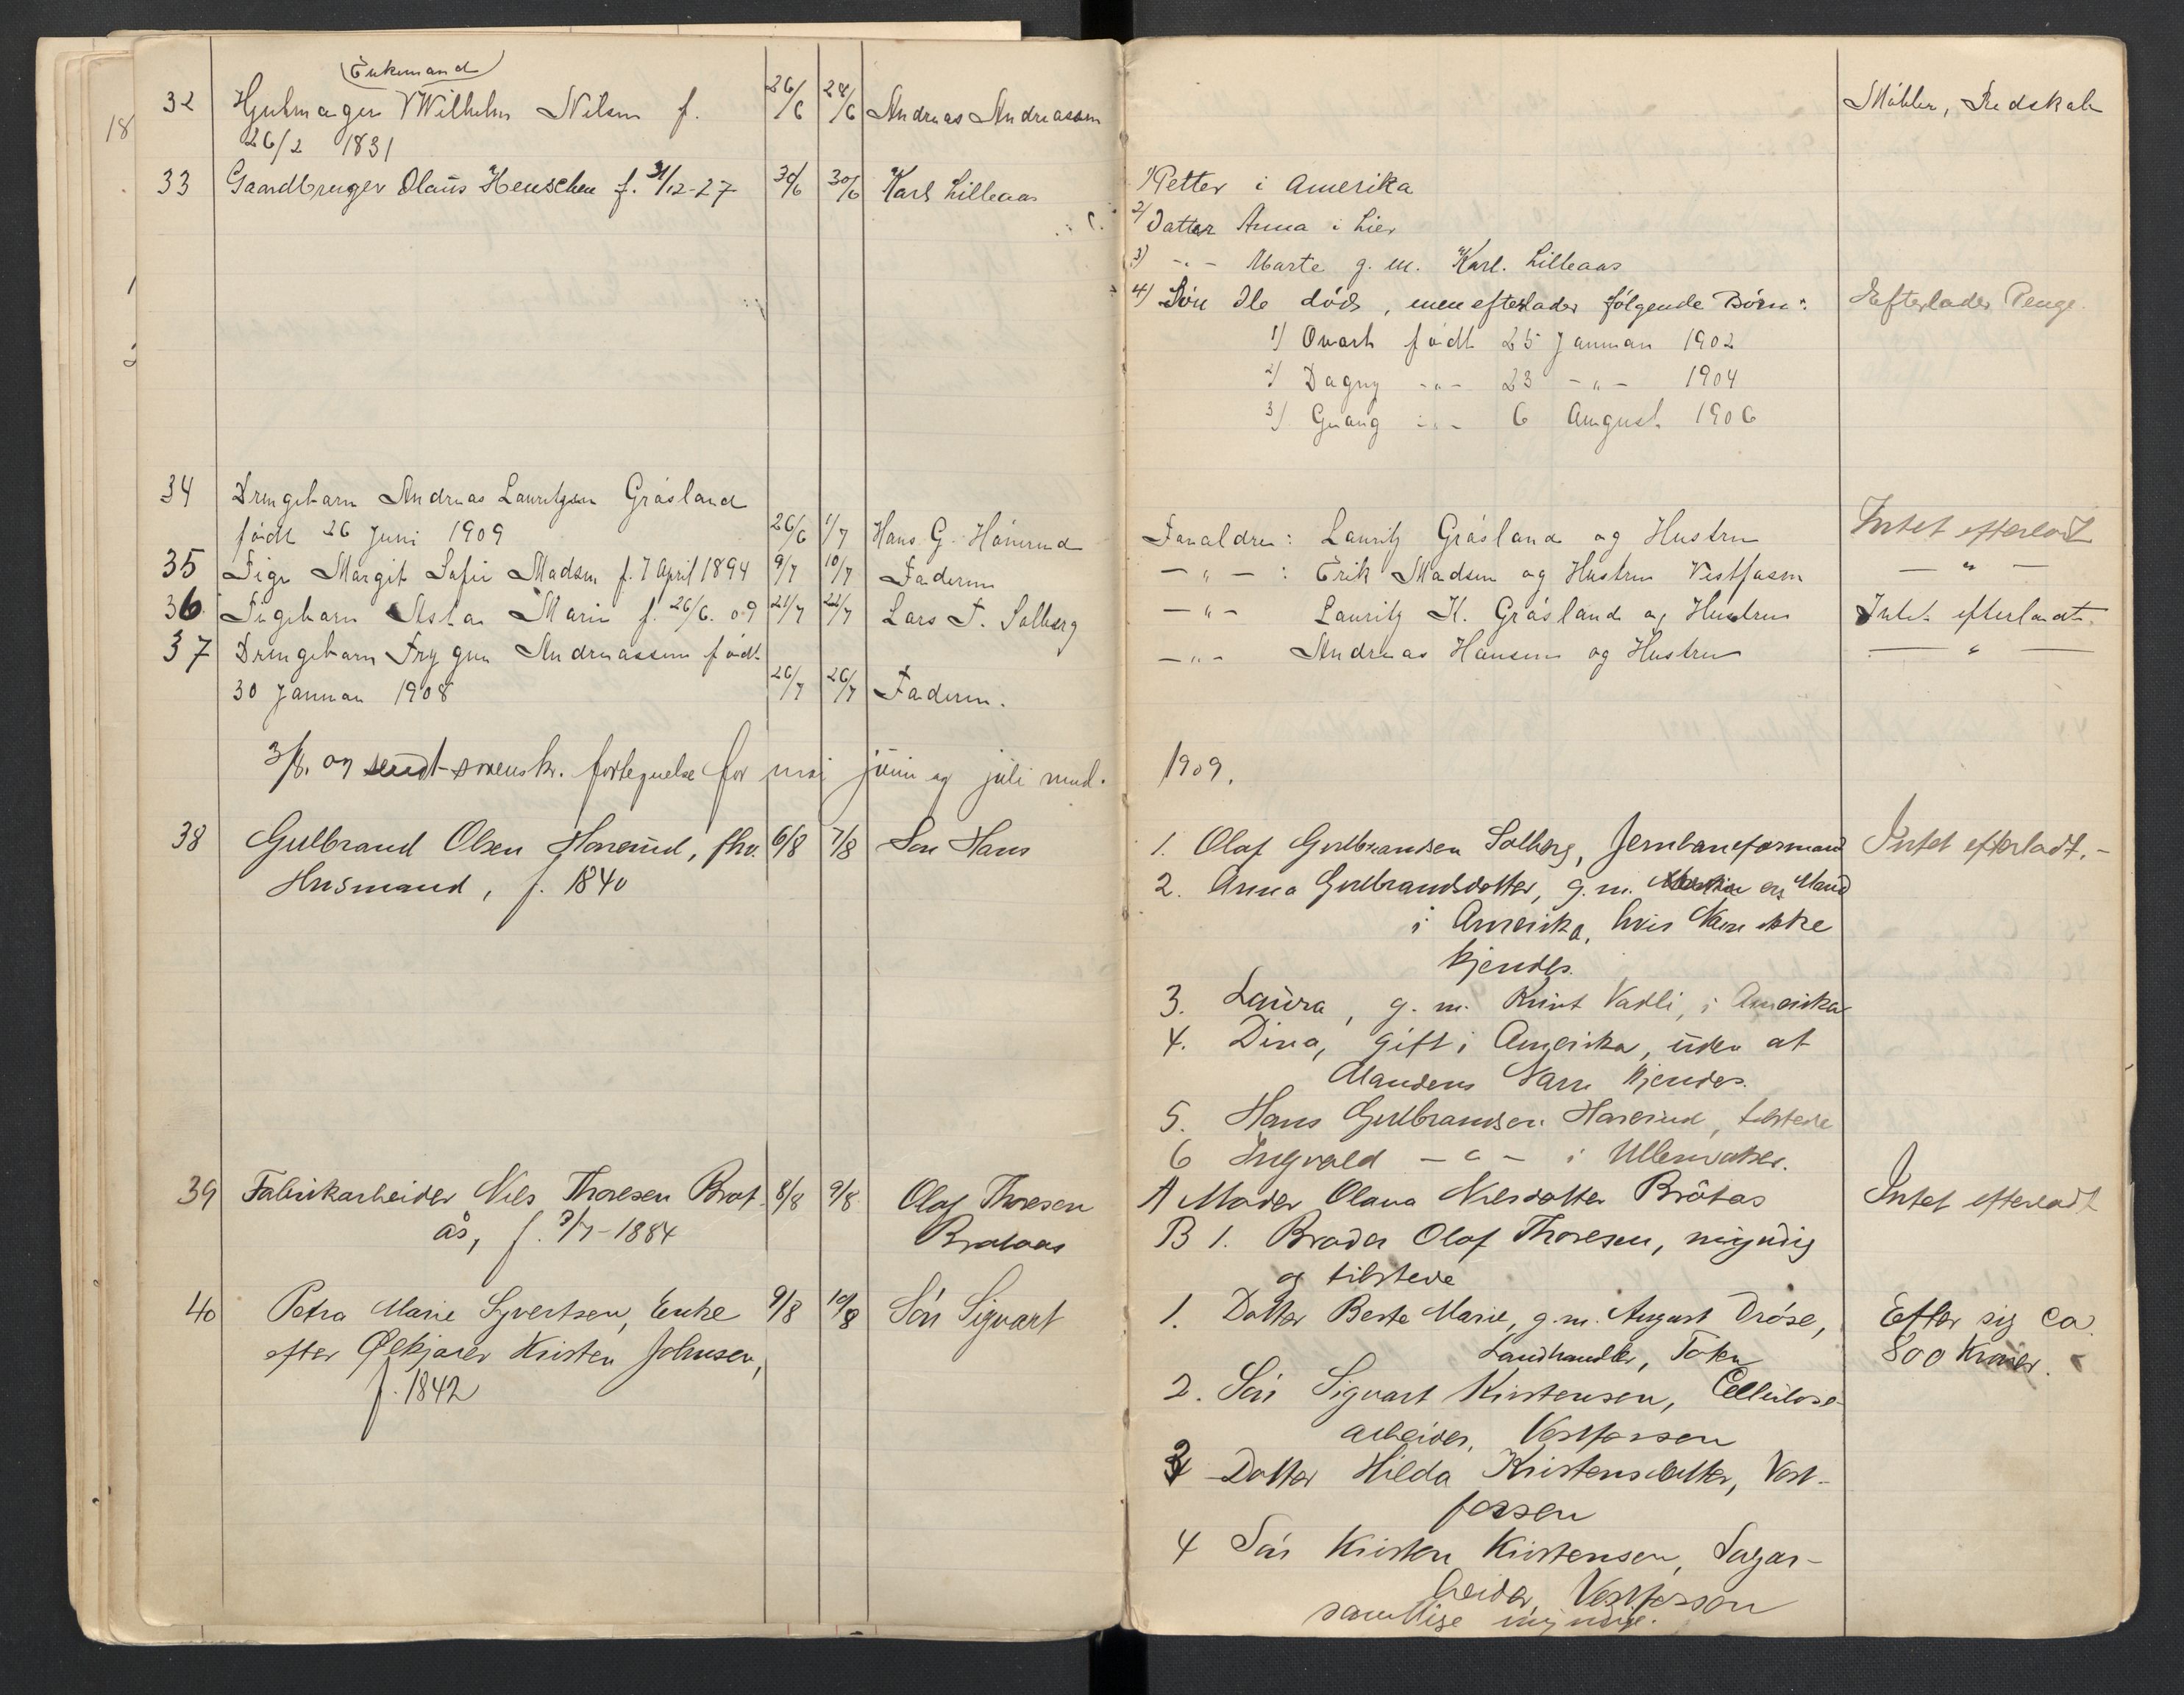 (Enkemand)
32 Hjulmager Wilhelm Nilsen f. 26/6 28/6 Andreas Andreassen Møbler, Redskab
26/2 1831
33 Gaardbruger Olaus Henschen f. 31/12-27 30/6 30/6 Karl Lilleaas 1) Petter i Amerika
2) Datter Anna i Lier
3) -"- Marte g. m. Karl. Lilleaas
4) Søn Ole död, men efterlader følgende Börn: Efterlader Penge.
1) født 25 Januar 1902
2) Dagny -"- 23 -"- 1904
3) -"- 6 August 1906
34 Drengebarn Andreas Lauritzsen Gråsland
født 26 Juni 1909 26/6 1/7 Hans G. Hønerud Foraldre: Lauritz Gråsland og Hustru Intet efterladt
35 Pige Margit Sofie Madsen f. 7 April 1894 9/7 10/7 Faderen -"- : Erik Madsen og Hustru Vestfossen -"-
36. Pigebarn Asta Marie f. 26/6. 09 21/7 22/7 Lars T. Solberg -"- Lauritz K. Gråsland og Hustru Intet efterladt.
37 Drengebarn Trygve Andreassen født -"- Andreas Hansen og Hustru -"-
30 Januar 1908 26/7 26/7 Faderen.
3/8. 09 sendt sorenskr. fortegnelse for mai juni og juli mnd. 1909.
38 Gulbrand Olsen Honerud, fhv. 6/8 7/8 Søn Hans 1. Olaf Gulbrandsen Solberg, Jernbaneformand Intet efterladt.-
Husmand, f. 1840 2. Anna Gulbrandsdatter, g. m. en Mand
i Amerika, hvis Navn ikke
kjendes.
3. Laura, g. m. Knut Vadli, i Amerika
4. Dina, gift i Amerika, uden at
Mandens Navn kjendes.
5. Hans Gulbrandsen Honerud, tilstede
6 Ingvald -"- i Ullensaker.
39 Fabrikarbeider Nils Thoresen Brat- 8/8 9/8 Olaf Thoresen A Moder Olava Nilsdatter Bråtås Intet efterladt
ås, f. 3/7-1884 Brataas B 1. Broder Olaf Thoresen, myndig
og tilstede
40 Petra Marie Syvertsen, Enke 9/8 10/8 Søn Sigvart 1. Datter Berte Marie, g. m. August Drøse, Efter sig ca.
efter Ølkjører Kristen Johnsen, Landhandler, 800 Kroner.
f. 1842 2. Søn Sigvart Kristensen, Cellulose-
arbeider, Vestfossen
3 Datter Hilda Kristensdatter, Vest-
fossen
4 Søn Kristen Kristensen, Sagar-
beider, Vestfossen
samtlige myndige.